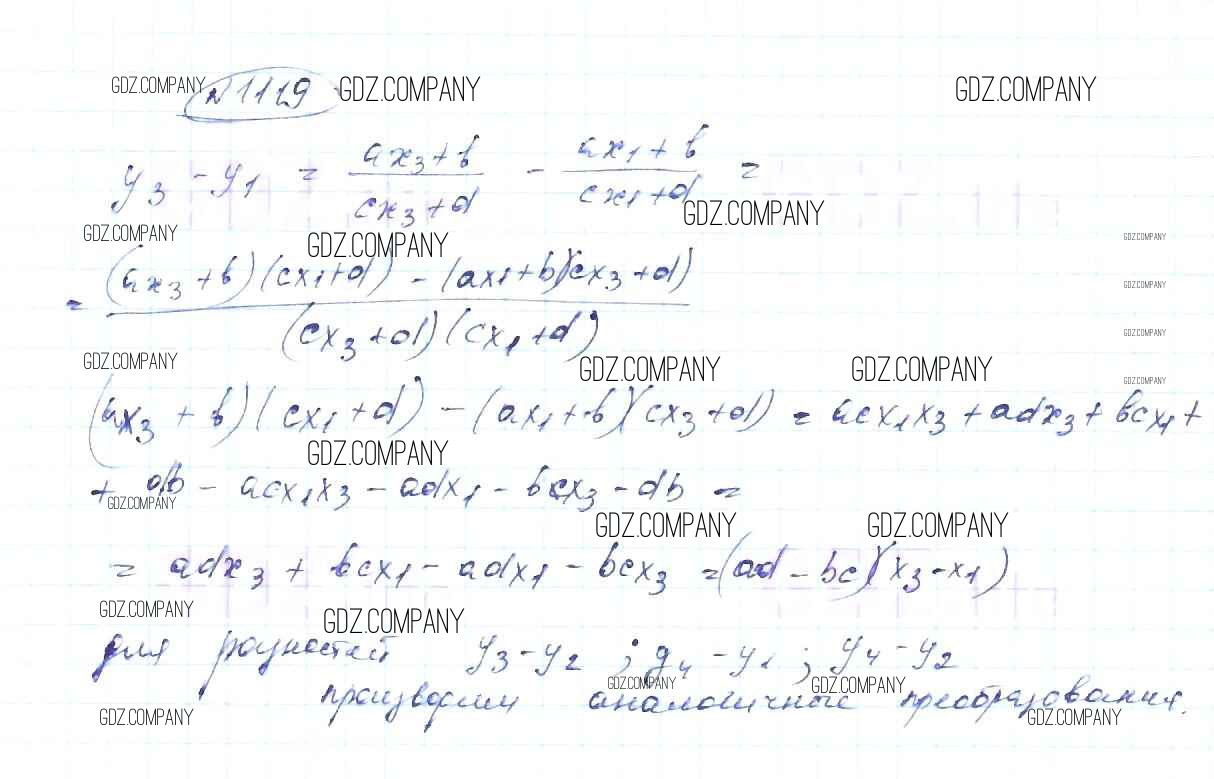 GDZ.COMPANY № 1119 GDZ.COMPANY GDZ.COMPANY
y₃ - y₁ = (ax₃ + b)/(cx₃ + d) - (ax₁ + b)/(cx₁ + d) =
GDZ.COMPANY GDZ.COMPANY GDZ.COMPANY GDZ.COMPANY
= ((ax₃ + b)(cx₁ + d) - (ax₁ + b)(cx₃ + d))/((cx₃ + d)(cx₁ + d))
GDZ.COMPANY
GDZ.COMPANY
GDZ.COMPANY GDZ.COMPANY GDZ.COMPANY
GDZ.COMPANY
(ax₃ + b)(cx₁ + d) - (ax₁ + b)(cx₃ + d) = acx₁x₃ + adx₃ + bcx₁ +
GDZ.COMPANY
+ db - acx₁x₃ - adx₁ - bcx₃ - db =
GDZ.COMPANY
GDZ.COMPANY GDZ.COMPANY
= adx₃ + bcx₁ - adx₁ - bcx₃ = (ad - bc)(x₃ - x₁)
GDZ.COMPANY GDZ.COMPANY
для разностей y₃ - y₂ ; y₄ - y₁ ; y₄ - y₂
GDZ.COMPANY GDZ.COMPANY
производим аналогичные преобразования.
GDZ.COMPANY GDZ.COMPANY